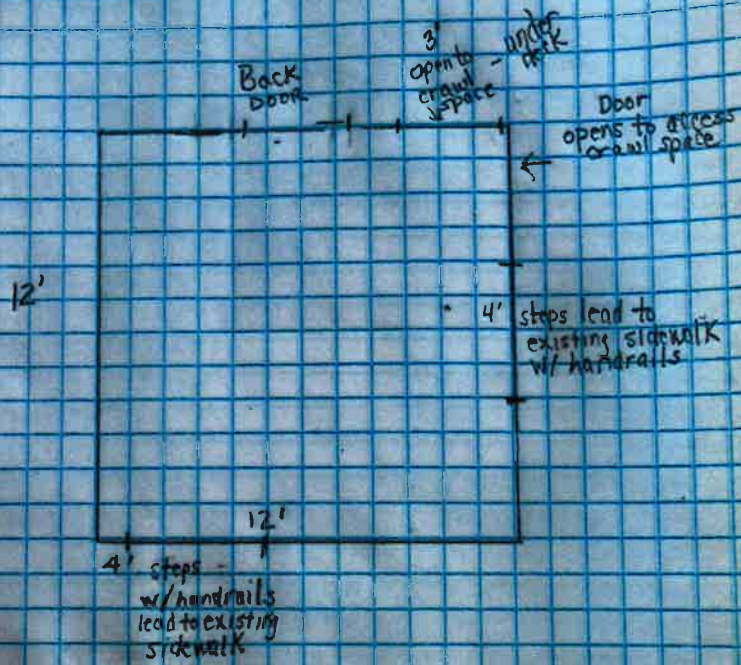 Back
DOOR
3'
open to
crawl
space
- under
deck
Door
opens to access
crawl space
12'
4'
steps lead to
existing sidewalk
w/ handrails
12'
4'
steps -
w/handrails
lead to existing
sidewalk